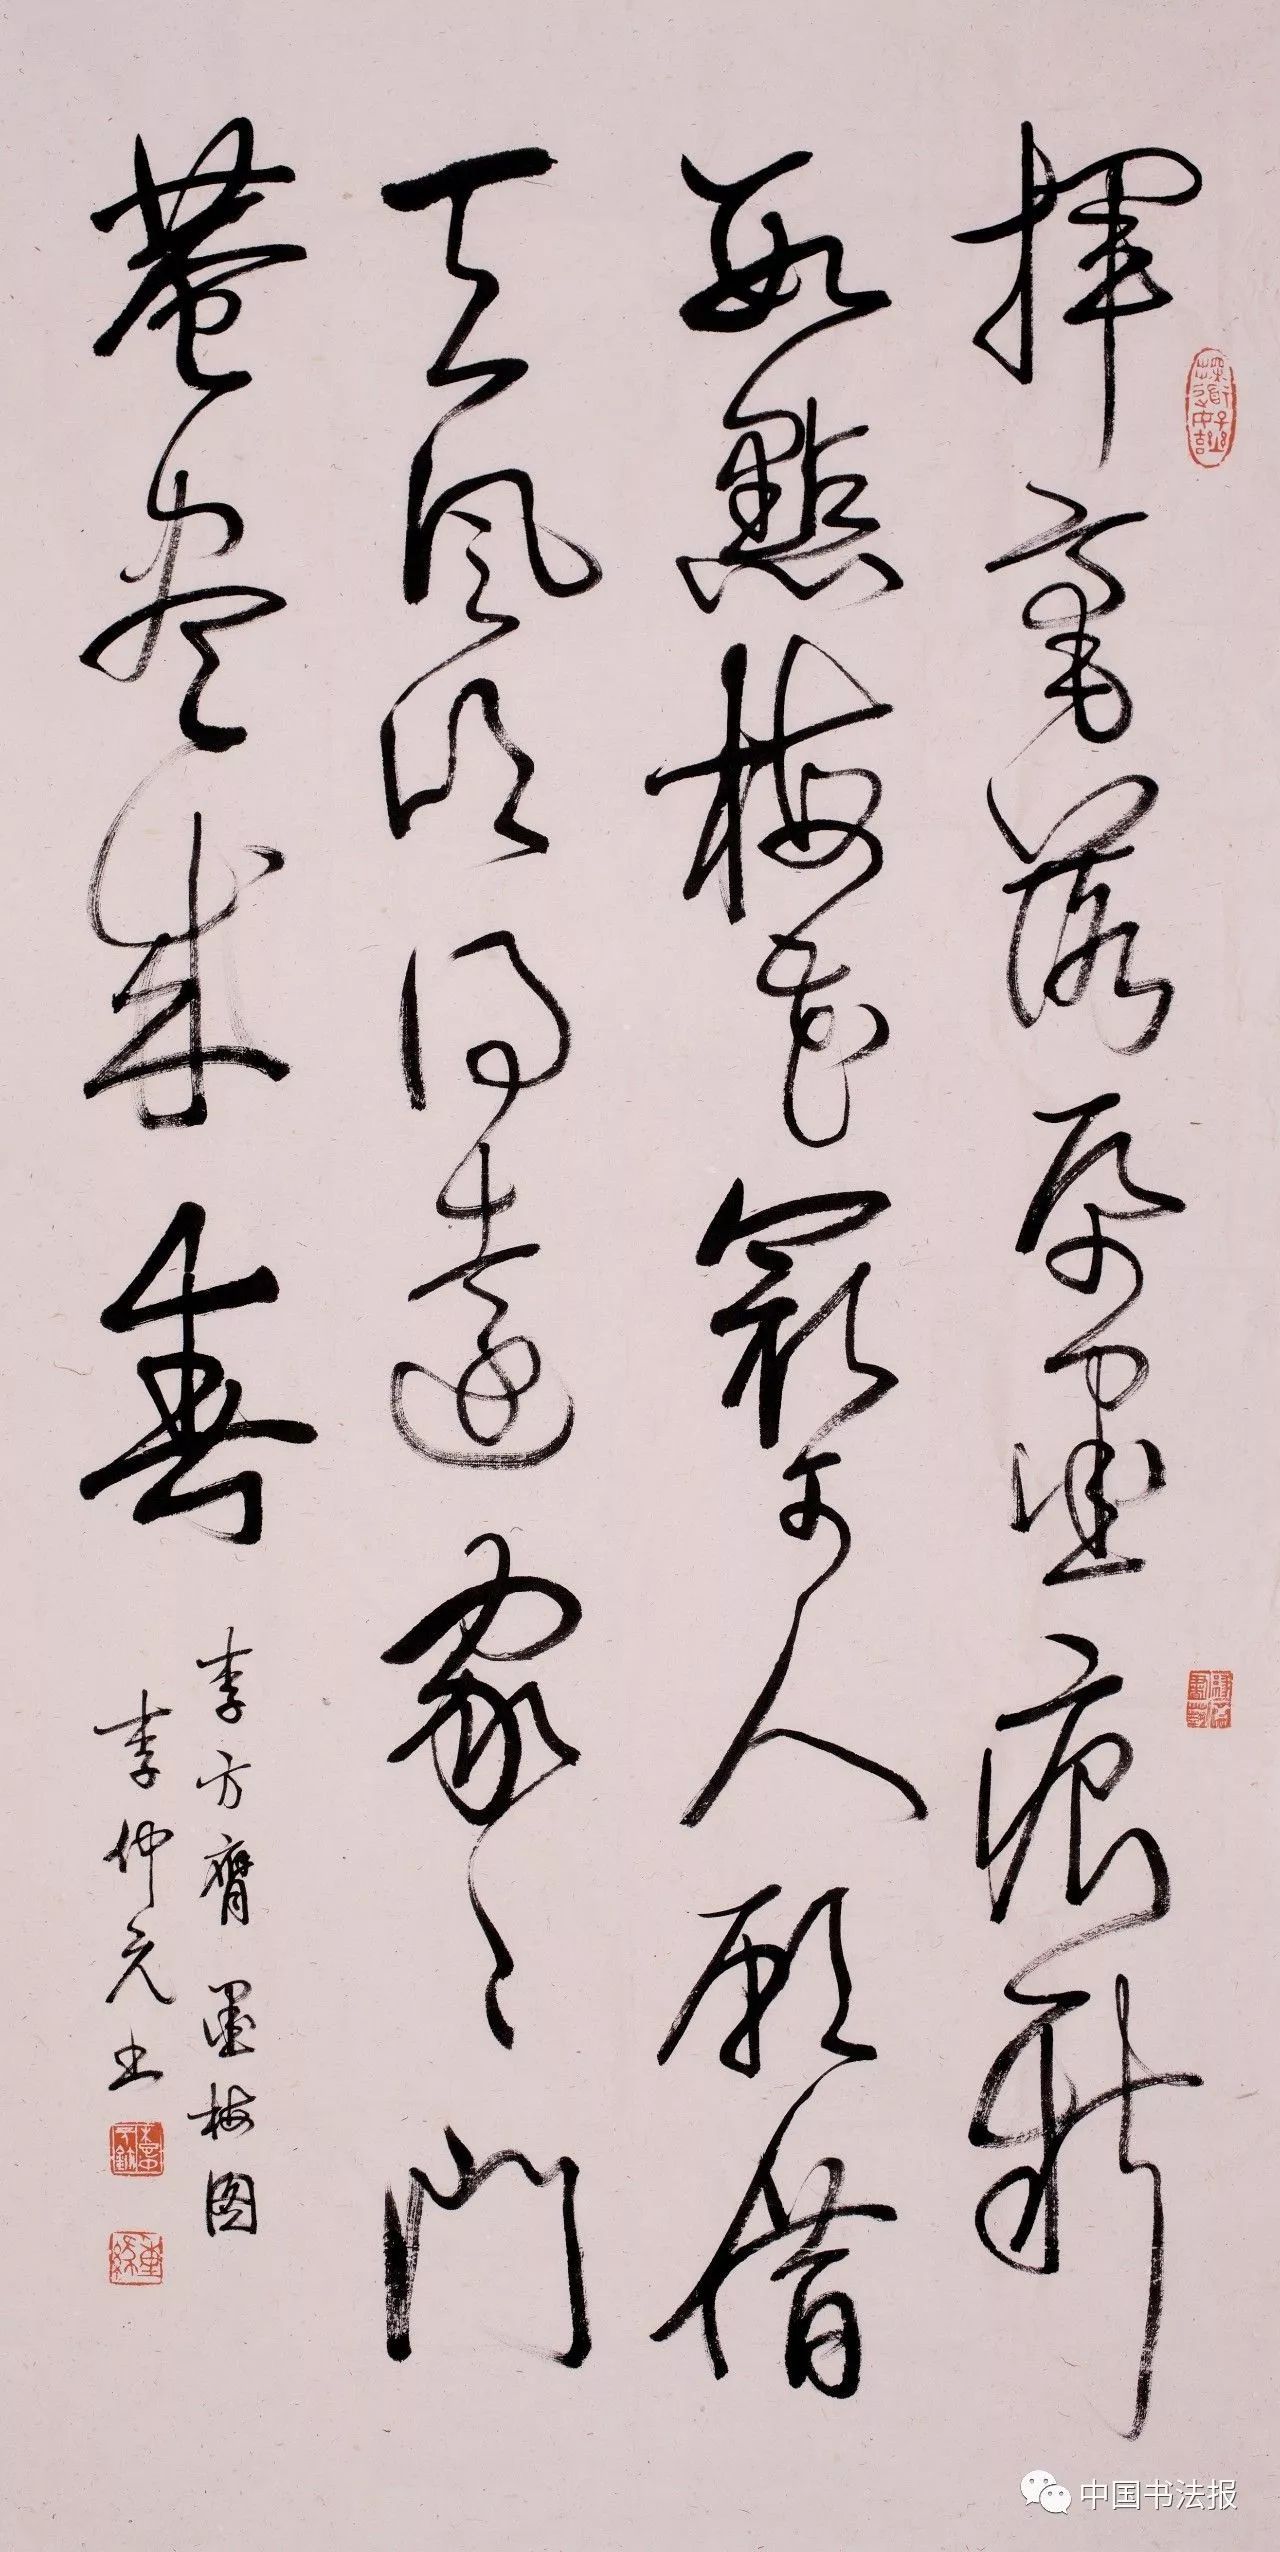 揮毫落帋墨痕新
數點梅花冣可人願借
天風吹得遠家々門
巷盡成春
李方膺墨梅图
李仲元书
中国书法报